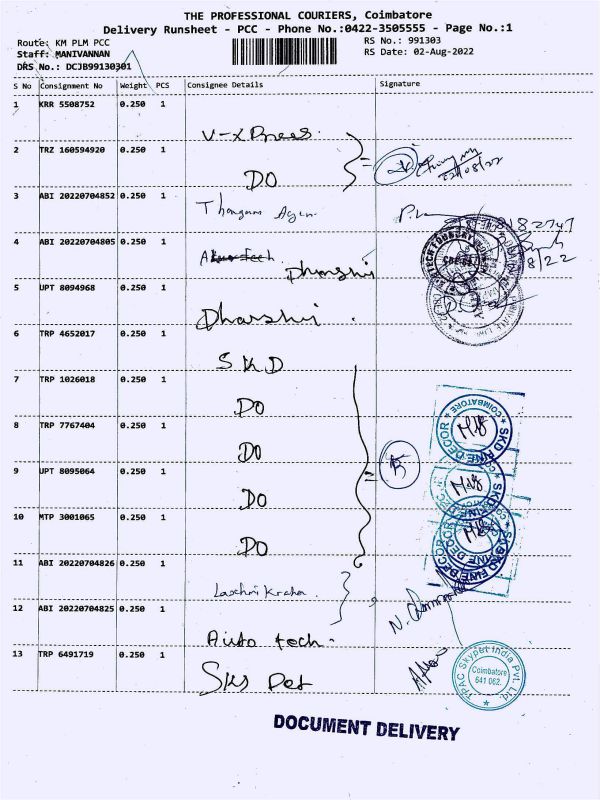 THE PROFESSIONAL COURIERS, Coimbatore
Delivery Runsheet - PCC - Phone No.:0422-3505555 - Page No.:1
Route: KM PLM PCC
RS No.: 991303
Staff: MANIVANNAN
RS Date: 02-Aug-2022
DRS No.: DCJB99130301
S No Consignment No Weight PCS Consignee Details Signature
1 KRR 5508752 0.250 1
V-XPress
2 TRZ 160594920 0.250 1
DO
3 ABI 20220704852 0.250 1
4 ABI 20220704805 0.250 1
5 UPT 8094968 0.250 1
Dharshi
6 TRP 4652017 0.250 1
SKD
7 TRP 1026018 0.250 1
DO
8 TRP 7767404 0.250 1
DO
SKD FINE DECOR
COIMBATORE
9 UPT 8095064 0.250 1
DO
5
10 MTP 3001065 0.250 1
DO
11 ABI 20220704826 0.250 1
12 ABI 20220704825 0.250 1
Auto tech.
13 TRP 6491719 0.250 1
TPAC Skypet India Pvt. Ltd.
Coimbatore
641 062.
DOCUMENT DELIVERY